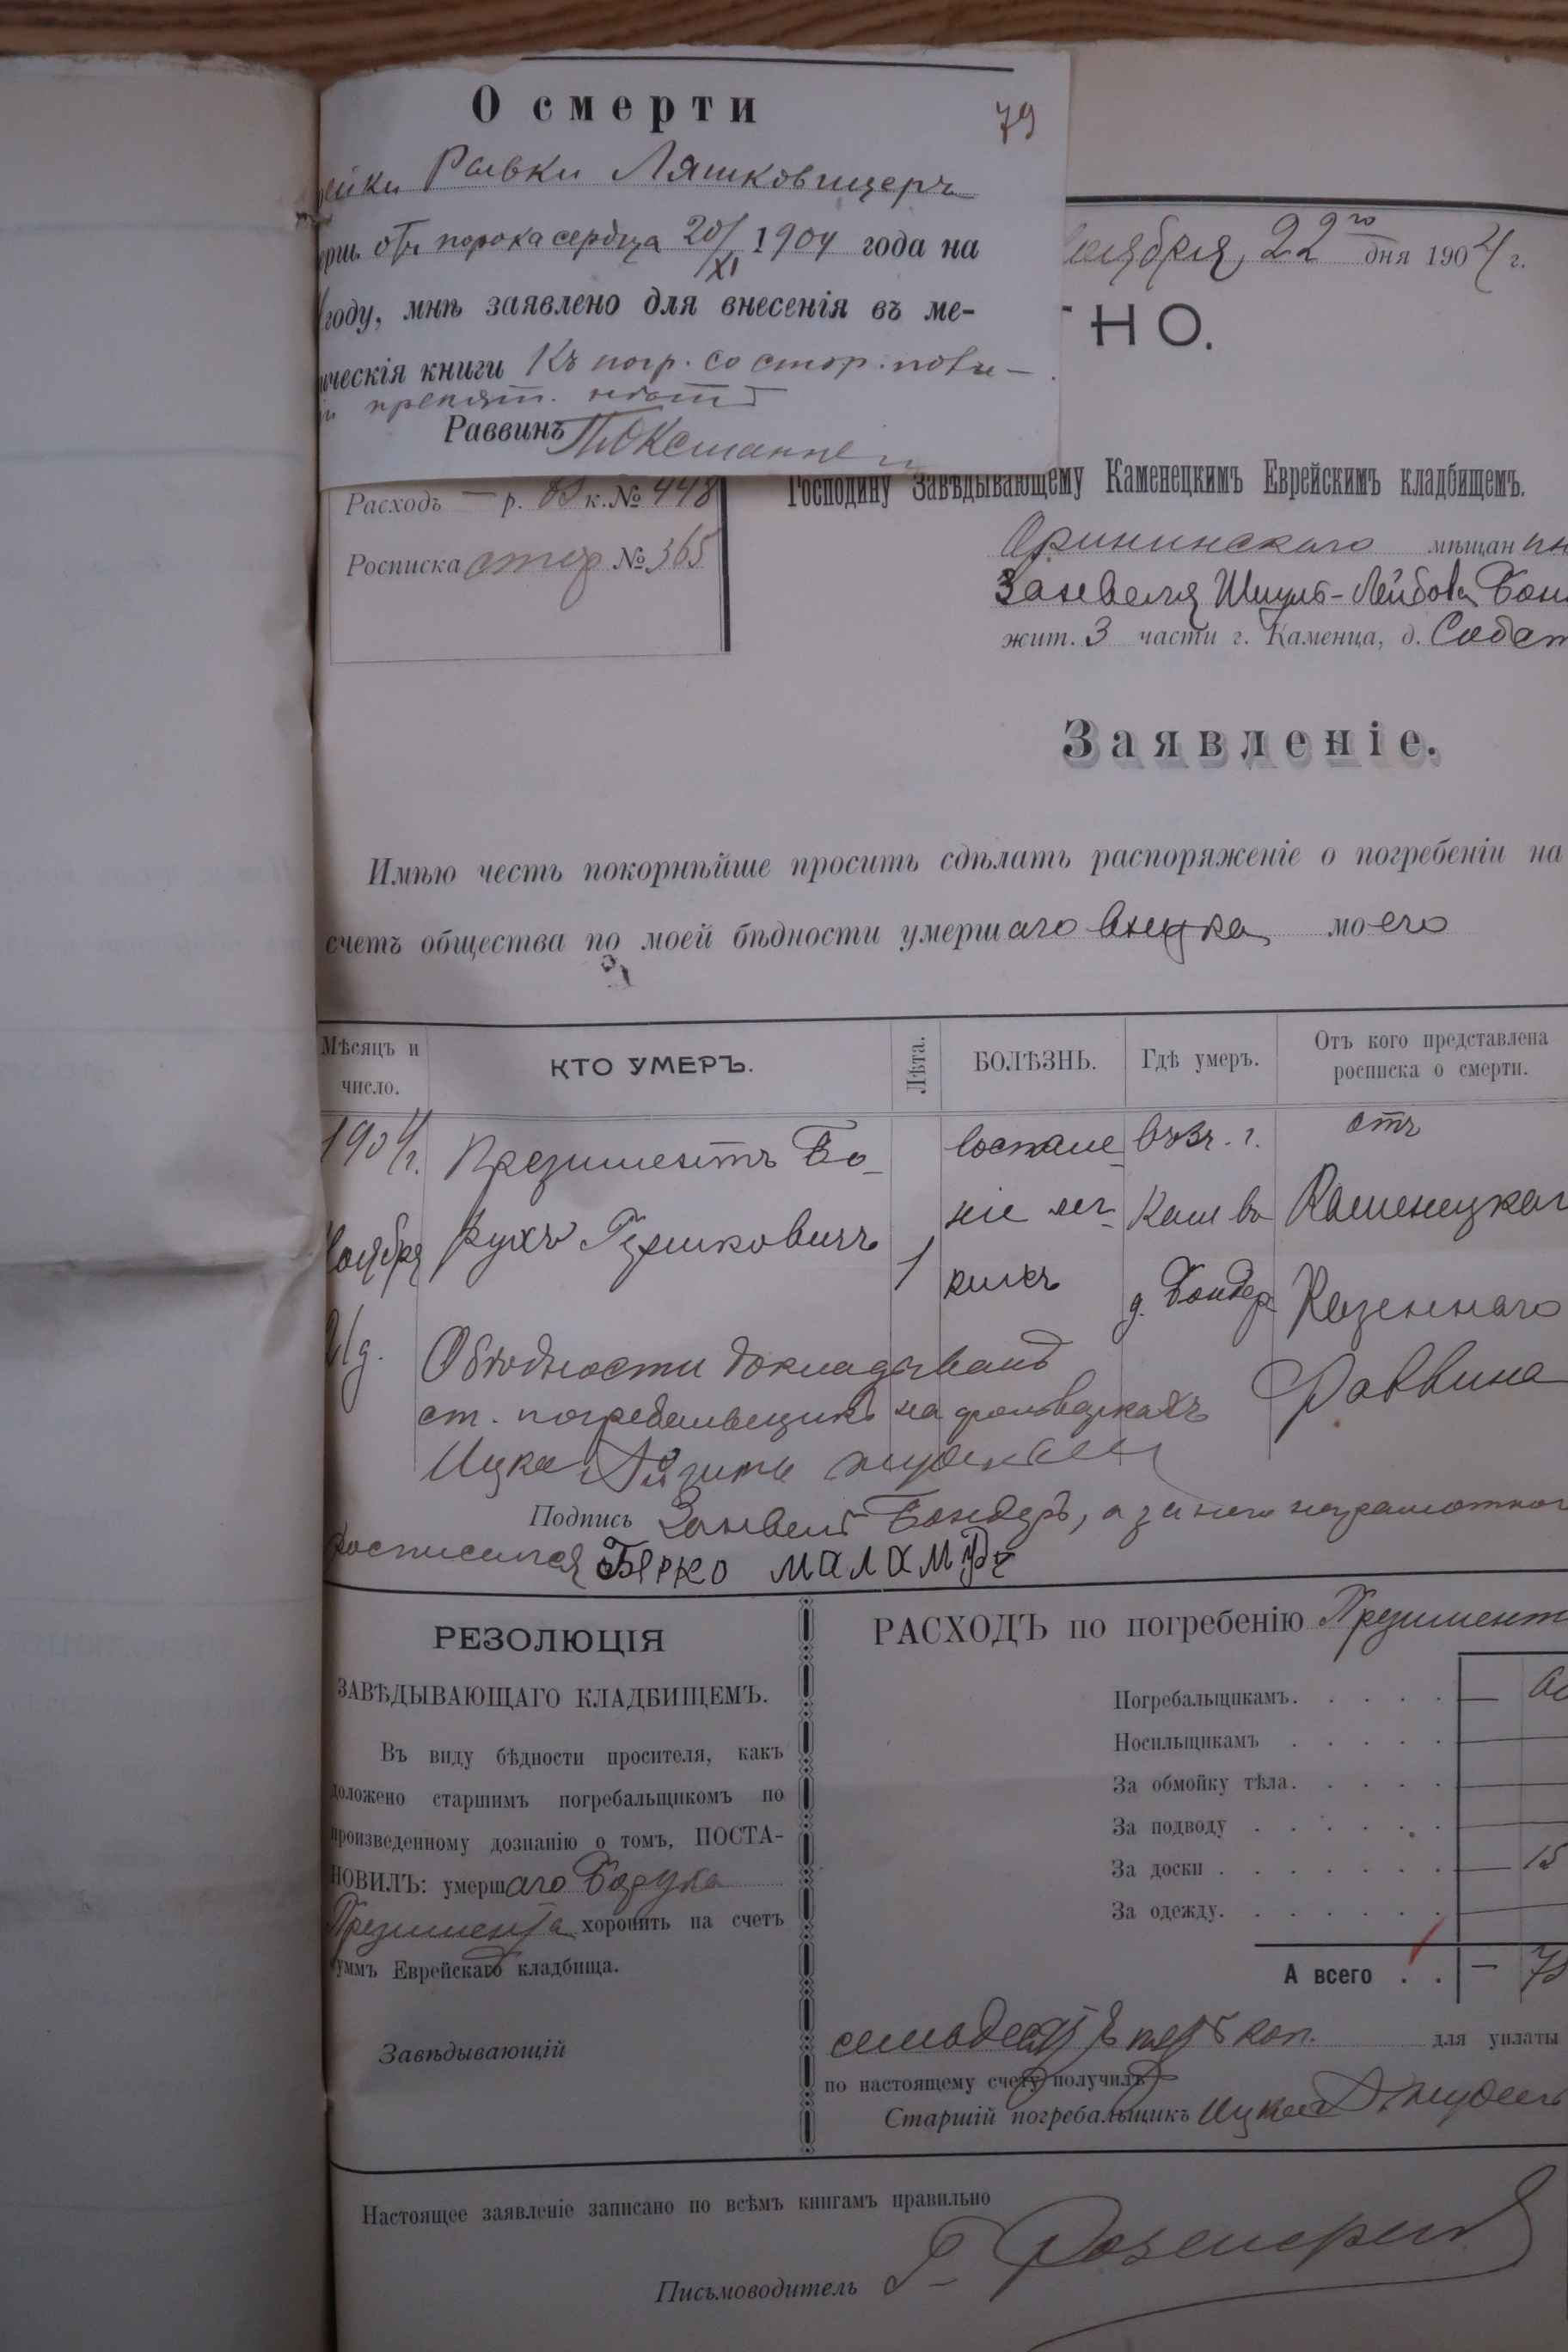 О смерти
79
Ривки Ляшковицеръ
отъ порока сердца 20/XI 1904 года на
году, мнѣ заявлено для внесенія въ ме-
ическія книги Къ погр. со стор.
препят. нѣтъ
Раввинъ
ноября, 22го дня 1904 г.
НО.
Расходъ — р. к. № 448
Росписка стор № 365
Господину Завѣдывающему Каменецкимъ Еврейскимъ кладбищемъ.
Орининскаго мѣщанин
Занвеля Шмуль-Лейбова Бон
жит. 3 части г. Каменца, д. Собст
Заявленіе.
Имѣю честь покорнѣйше просить сдѣлать распоряженіе о погребеніи на
счетъ общества по моей бѣдности умершаго внука моего
Мѣсяцъ и число.
КТО УМЕРЪ.
Лѣта.
БОЛѢЗНЬ.
Гдѣ умеръ.
Отъ кого представлена росписка о смерти.
1904 г.
ноября
21 д.
Презиментъ Бо-
рухъ Гершковичъ
1
воспале-
ніе лег-
кихъ
въ г.
Кам въ
д. Бондер
отъ
Каменецкаг
Казеннаго
Раввина
О бѣдности докладывалъ
ст. погребальщикъ на фольваркахъ
Ицка
Подпись Занвель Бондеръ, а за него неграмотног
росписался Берко маламудъ
РЕЗОЛЮЦІЯ
ЗАВѢДЫВАЮЩАГО КЛАДБИЩЕМЪ.
Въ виду бѣдности просителя, какъ
доложено старшимъ погребальщикомъ по
произведенному дознанію о томъ, ПОСТА-
НОВИЛЪ: умершаго Боруха
Презимента хоронить на счетъ
суммъ Еврейскаго кладбища.
Завѣдывающій
РАСХОДЪ по погребенію Презимент
Погребальщикамъ. . . . . — 60
Носильщикамъ . . . . .
За обмойку тѣла. . . . .
За подводу . . . . . .
За доски . . . . . . . — 15
За одежду. . . . . . .
А всего . . — 75
семьдесятъ пять коп. для уплаты
по настоящему счету получилъ
Старшій погребальщикъ Ицка
Настоящее заявленіе записано по всѣмъ книгамъ правильно
Письмоводитель